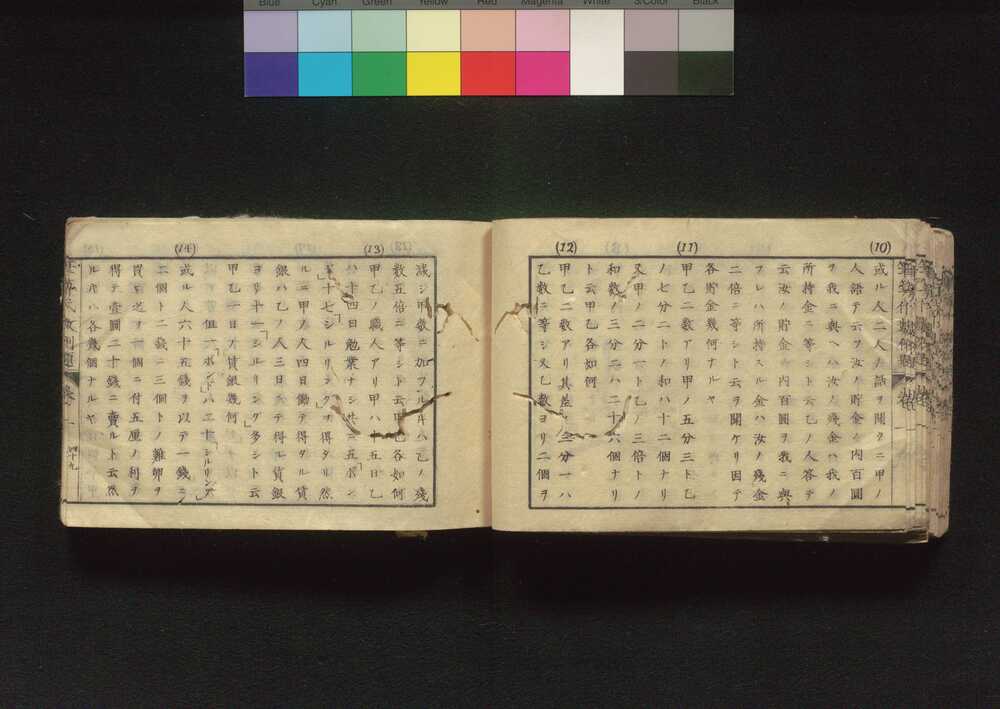 Blue Cyan Green Yellow Red Magenta White 3/Color Black
(10)
或ル人二人ノ話ヲ聞クニ甲ノ
人語テ云ヲ汝ノ貯金ノ内百圓
ヲ我ニ與ヘハ汝ノ殘金ハ我ノ
所持金ニ等シト云乙ノ人答テ
云汝ノ貯金ノ内百圓ヲ我ニ與
フレハ所持スル金ハ汝ノ殘金
二倍ニ等シト云ヲ聞ケリ因テ
各貯金幾何ナルヤ
(11)
甲乙二數アリ甲ノ五分三ト乙
ノ七分二トノ和ハ十二個ナリ
又甲ノ二分一ト乙ノ三倍トノ
和數ノ三分二ハ二十六個ナリ
ト云甲乙各如何
(12)
甲乙二數アリ其差ノ分一ハ
乙數ニ等シ又乙數ヨリ二個ヲ
減シ甲數ニ加フル片ハ乙ノ殘
數五倍ニ等シト云甲乙各如何
(13)
甲乙ノ職人アリ甲ハ十五日乙
ハ十四日勉業ナシ共ニ五「ポン
ド」十七「シルリング」ヲ得タリ然
ルニ甲ノ人四日働テ得タル賃
銀ハ乙ノ人三日ニテ得ル賃銀
ヨリ十一「シルリング」多シト云
甲乙一日ノ賃銀幾何
但一「ポンド」ハ二十「シルリング」
(14)
或ル人六十五錢ヲ以テ一錢ニ
二個ト二錢ニ三個トノ雞卵ヲ
買ヒ之ヲ一個ニ付五厘ノ利ヲ
得テ壹圓二十錢ニ賣ルト云然
ル片ハ各幾個ナルヤ
四十九